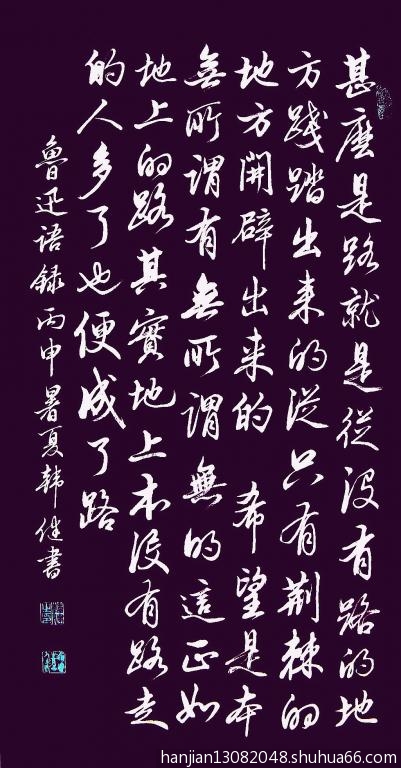 甚麼是路就是從沒有路的地
方踐踏出來的從只有荊棘的
地方開辟出來的 希望是本
無所謂有無所謂無的這正如
地上的路其實地上本沒有路走
的人多了也便成了路
魯迅语録丙申暑夏韩健書
hanjian13082048.shuhua66.com